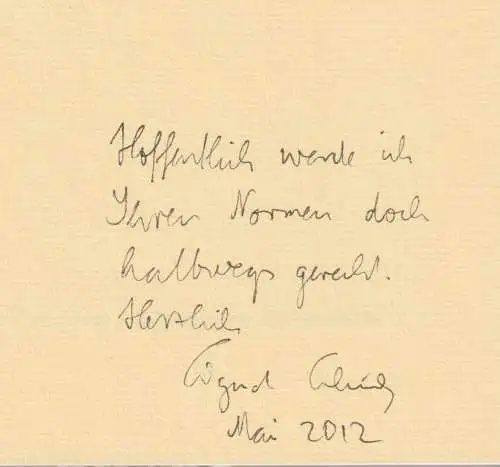 Hoffentlich werde ich
Ihren Normen doch
halbwegs gerecht.
Herzlich
Mai 2012